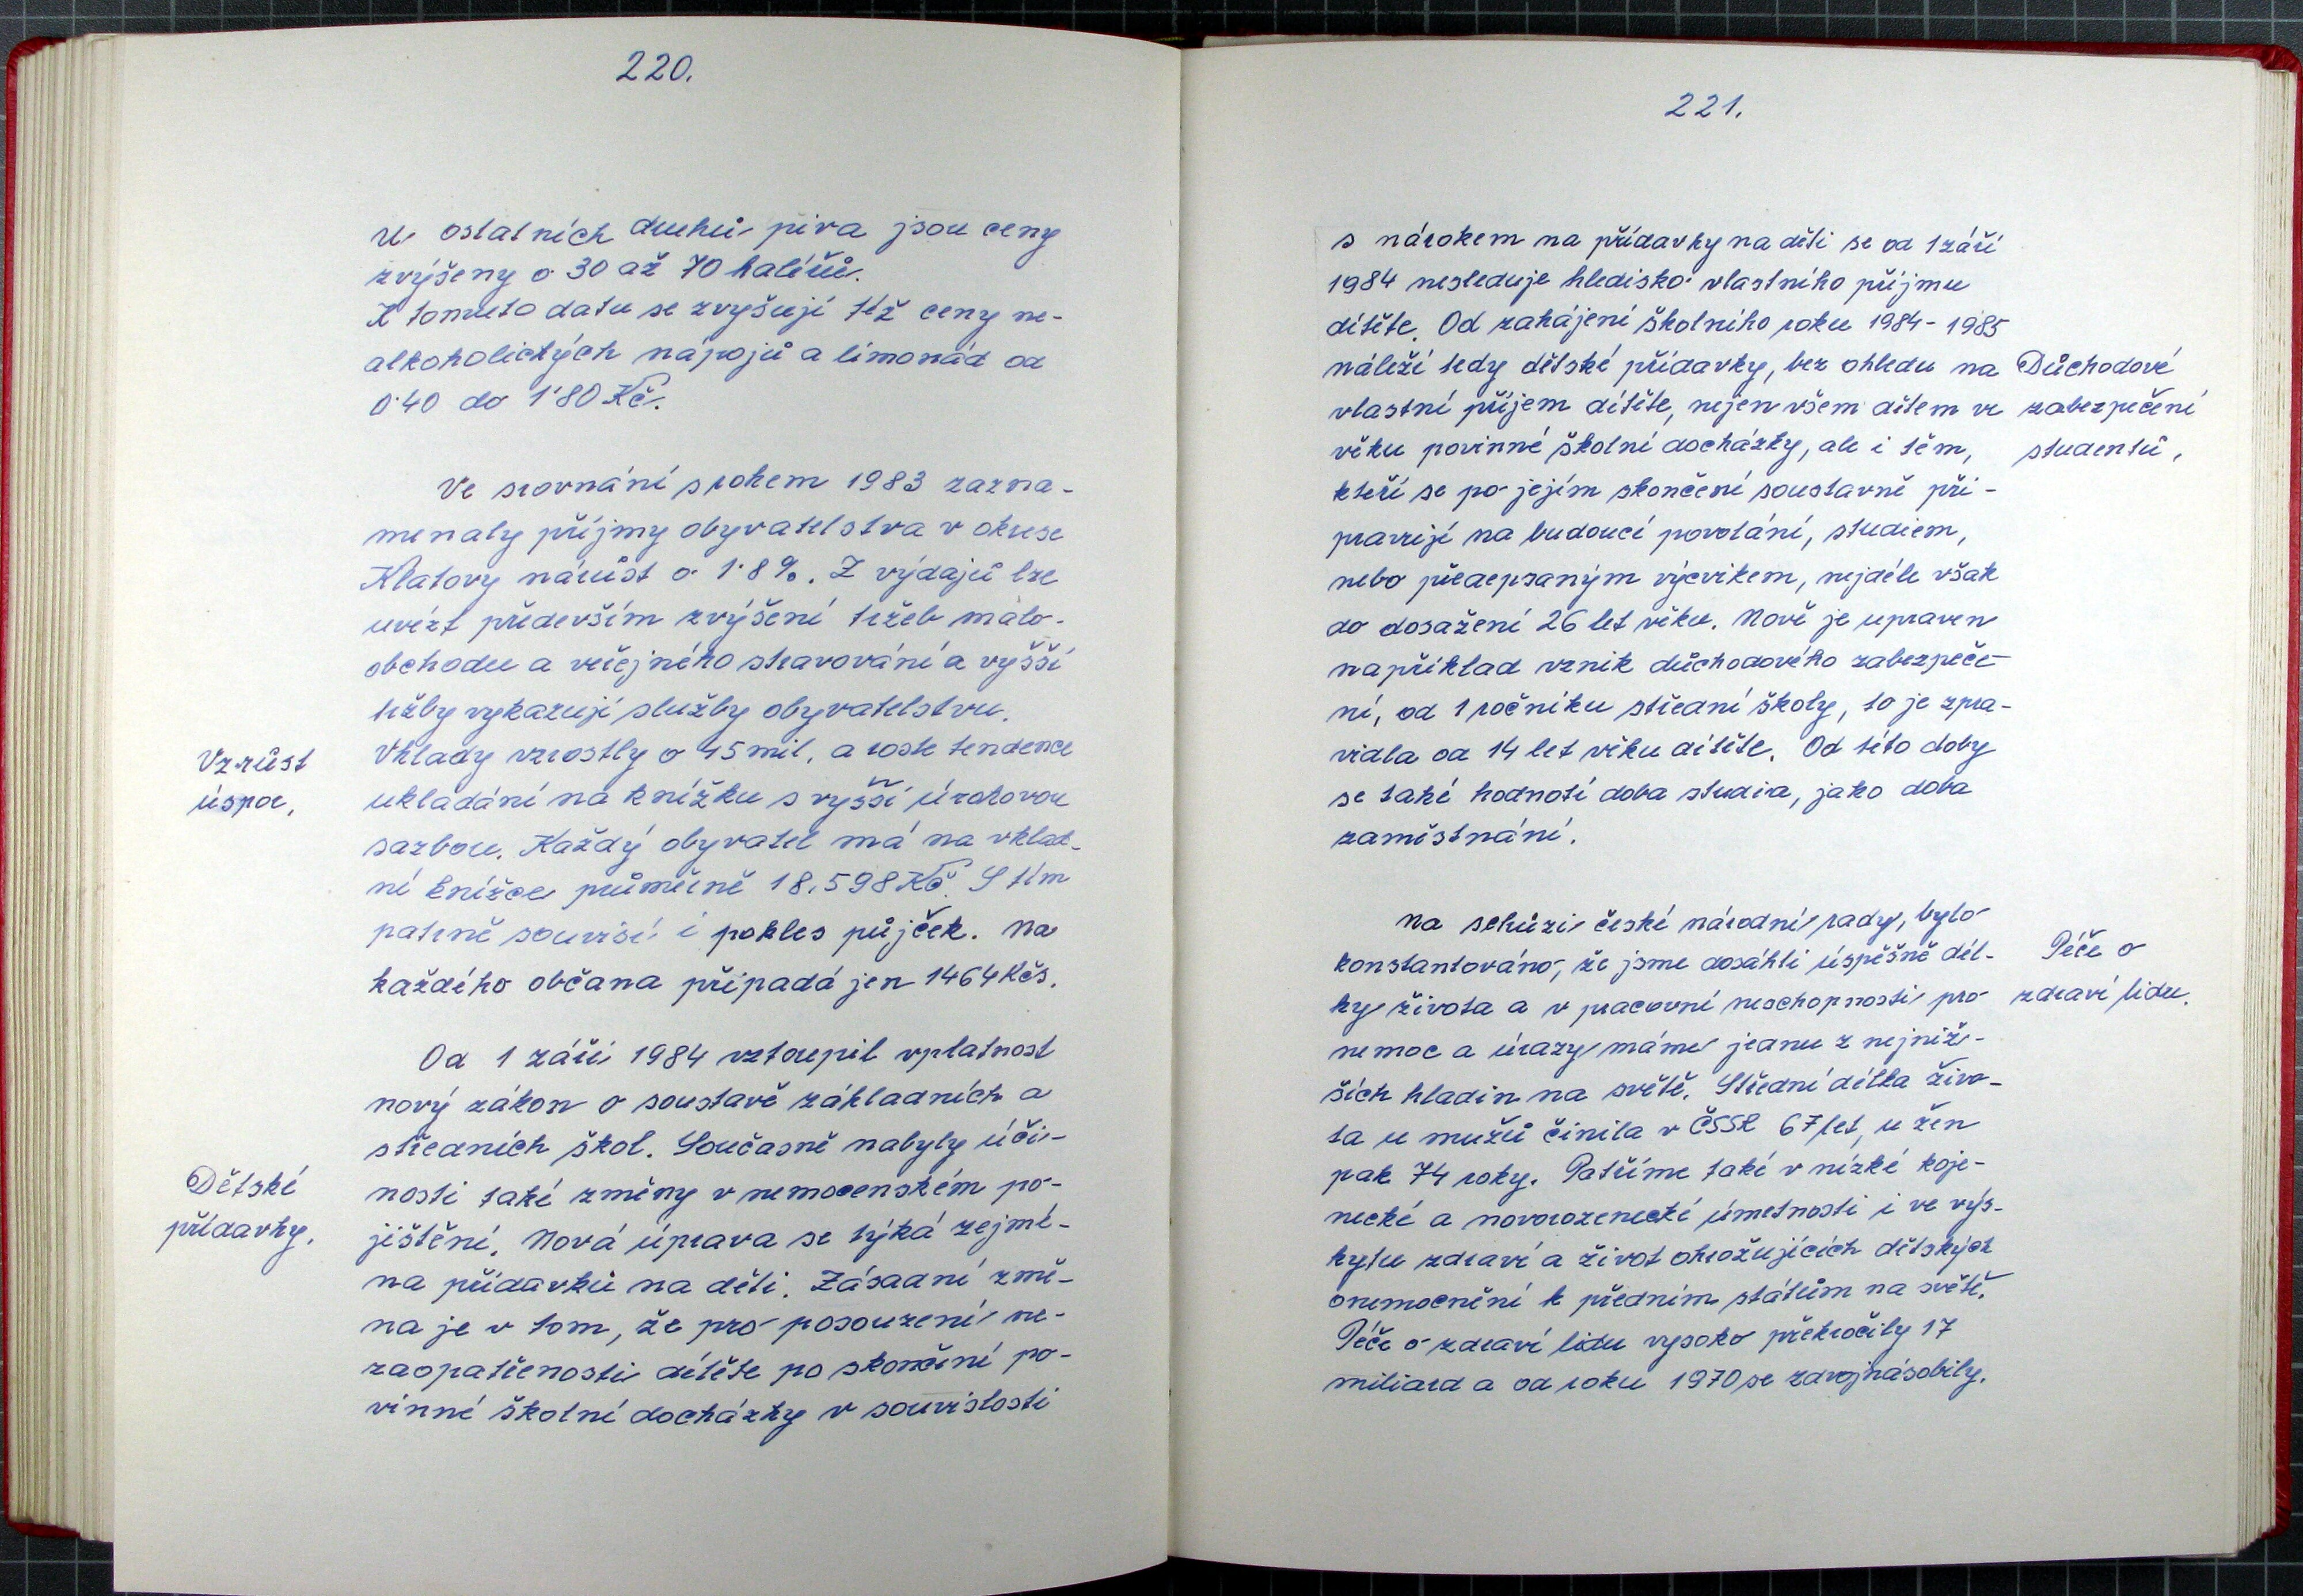 220.
u ostatních druhů piva jsou ceny
zvýšeny o 30 až 70 haléřů.
K tomuto datu se zvyšují též ceny ne-
alkoholických nápojů a limonád od
0·40 do 1·80 Kč.
Ve srovnání s rokem 1983 zazna-
menaly příjmy obyvatelstva v okrese
Klatovy nárůst o 1·8 %. Z výdajů lze
uvézt především zvýšení tržeb malo-
obchodu a veřejného stravování a vyšší
tržby vykazují služby obyvatelstvu.
Vklady vzrostly o 45 mil. a roste tendence
ukládání na knížku s vyšší úrokovou
sazbou. Každý obyvatel má na vklad-
ní knížce průměrně 18.598 Kč. S tím
patrně souvisí i pokles půjček. Na
každého občana připadá jen 1464 Kčs.
Vzrůst
úspor,
Od 1 září 1984 vztoupil vplatnost
nový zákon o soustavě základních a
středních škol. Současně nabyly úči-
nosti také změny v nemocenském po-
jištění. Nová úprava se týká zejmé-
na přídavků na děti. Zásadní změ-
na je v tom, že pro posouzení ne-
zaopatřenosti dítěte po skončení po-
vinné školní docházky v souvislosti
Dětské
přídavky.
221.
s nárokem na přídavky na děti se od 1 září
1984 nesleduje hledisko vlastního příjmu
dítěte. Od zahájení školního roku 1984 - 1985
náleží tedy dětské přídavky, bez ohledu na
vlastní příjem dítěte, nejen všem dětem ve
věku povinné školní docházky, ale i těm,
kteří se po jejím skončení soustavně při-
pravují na budoucí povolání, studiem,
nebo předepsaným výcvikem, nejdéle však
do dosažení 26 let věku. Nově je upraven
například vznik důchodového zabezpeče-
ní, od 1 ročníku střední školy, to je zpra-
vidla od 14 let věku dítěte. Od této doby
se také hodnotí doba studia, jako doba
zaměstnání.
Důchodové
zabezpečení
studentů,
Na schůzi české národní rady, bylo
konstantováno, že jsme dosáhli úspěšně dél-
ky života a v pracovní neschopnosti pro
nemoc a úrazy máme jednu z nejniž-
ších hladin na světě. Střední délka živo-
ta u mužů činila v ČSSR 67 let, u žen
pak 74 roky. Patříme také v nízké koje-
necké a novorozenecké úmrtnosti i ve výs-
kytu zdraví a život ohrožujících dětských
onemocnění k předním státům na světě.
Péče o zdraví lidu vysoko překročily 17
miliard a od roku 1970 se zdvojnásobily.
Péče o
zdraví lidu.